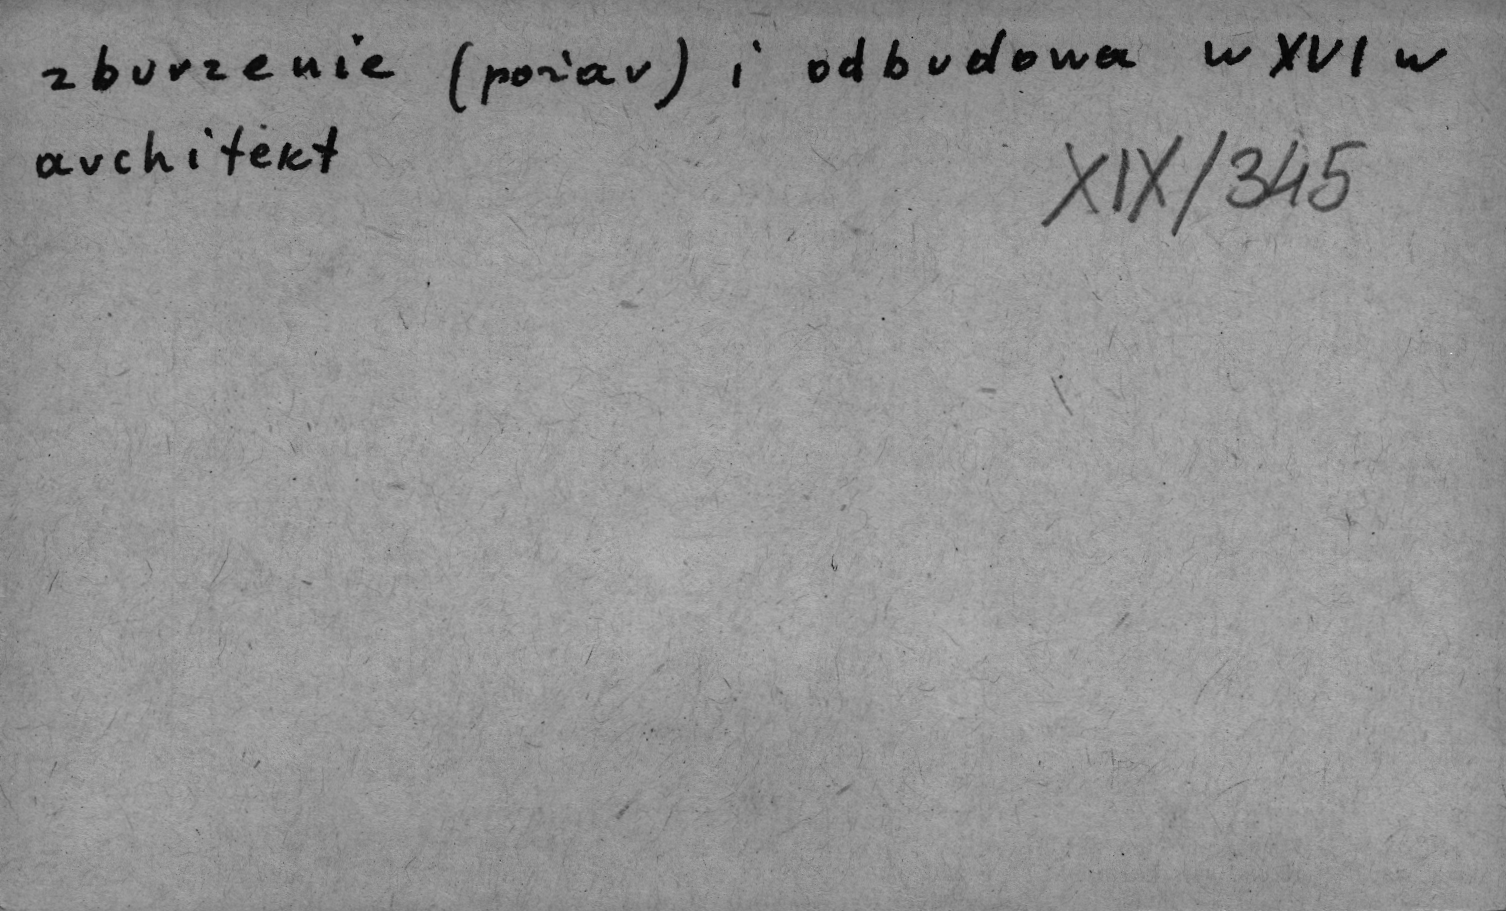 zburzenie (pożar) i odbudowa w XVI w
architekt
XIX/345